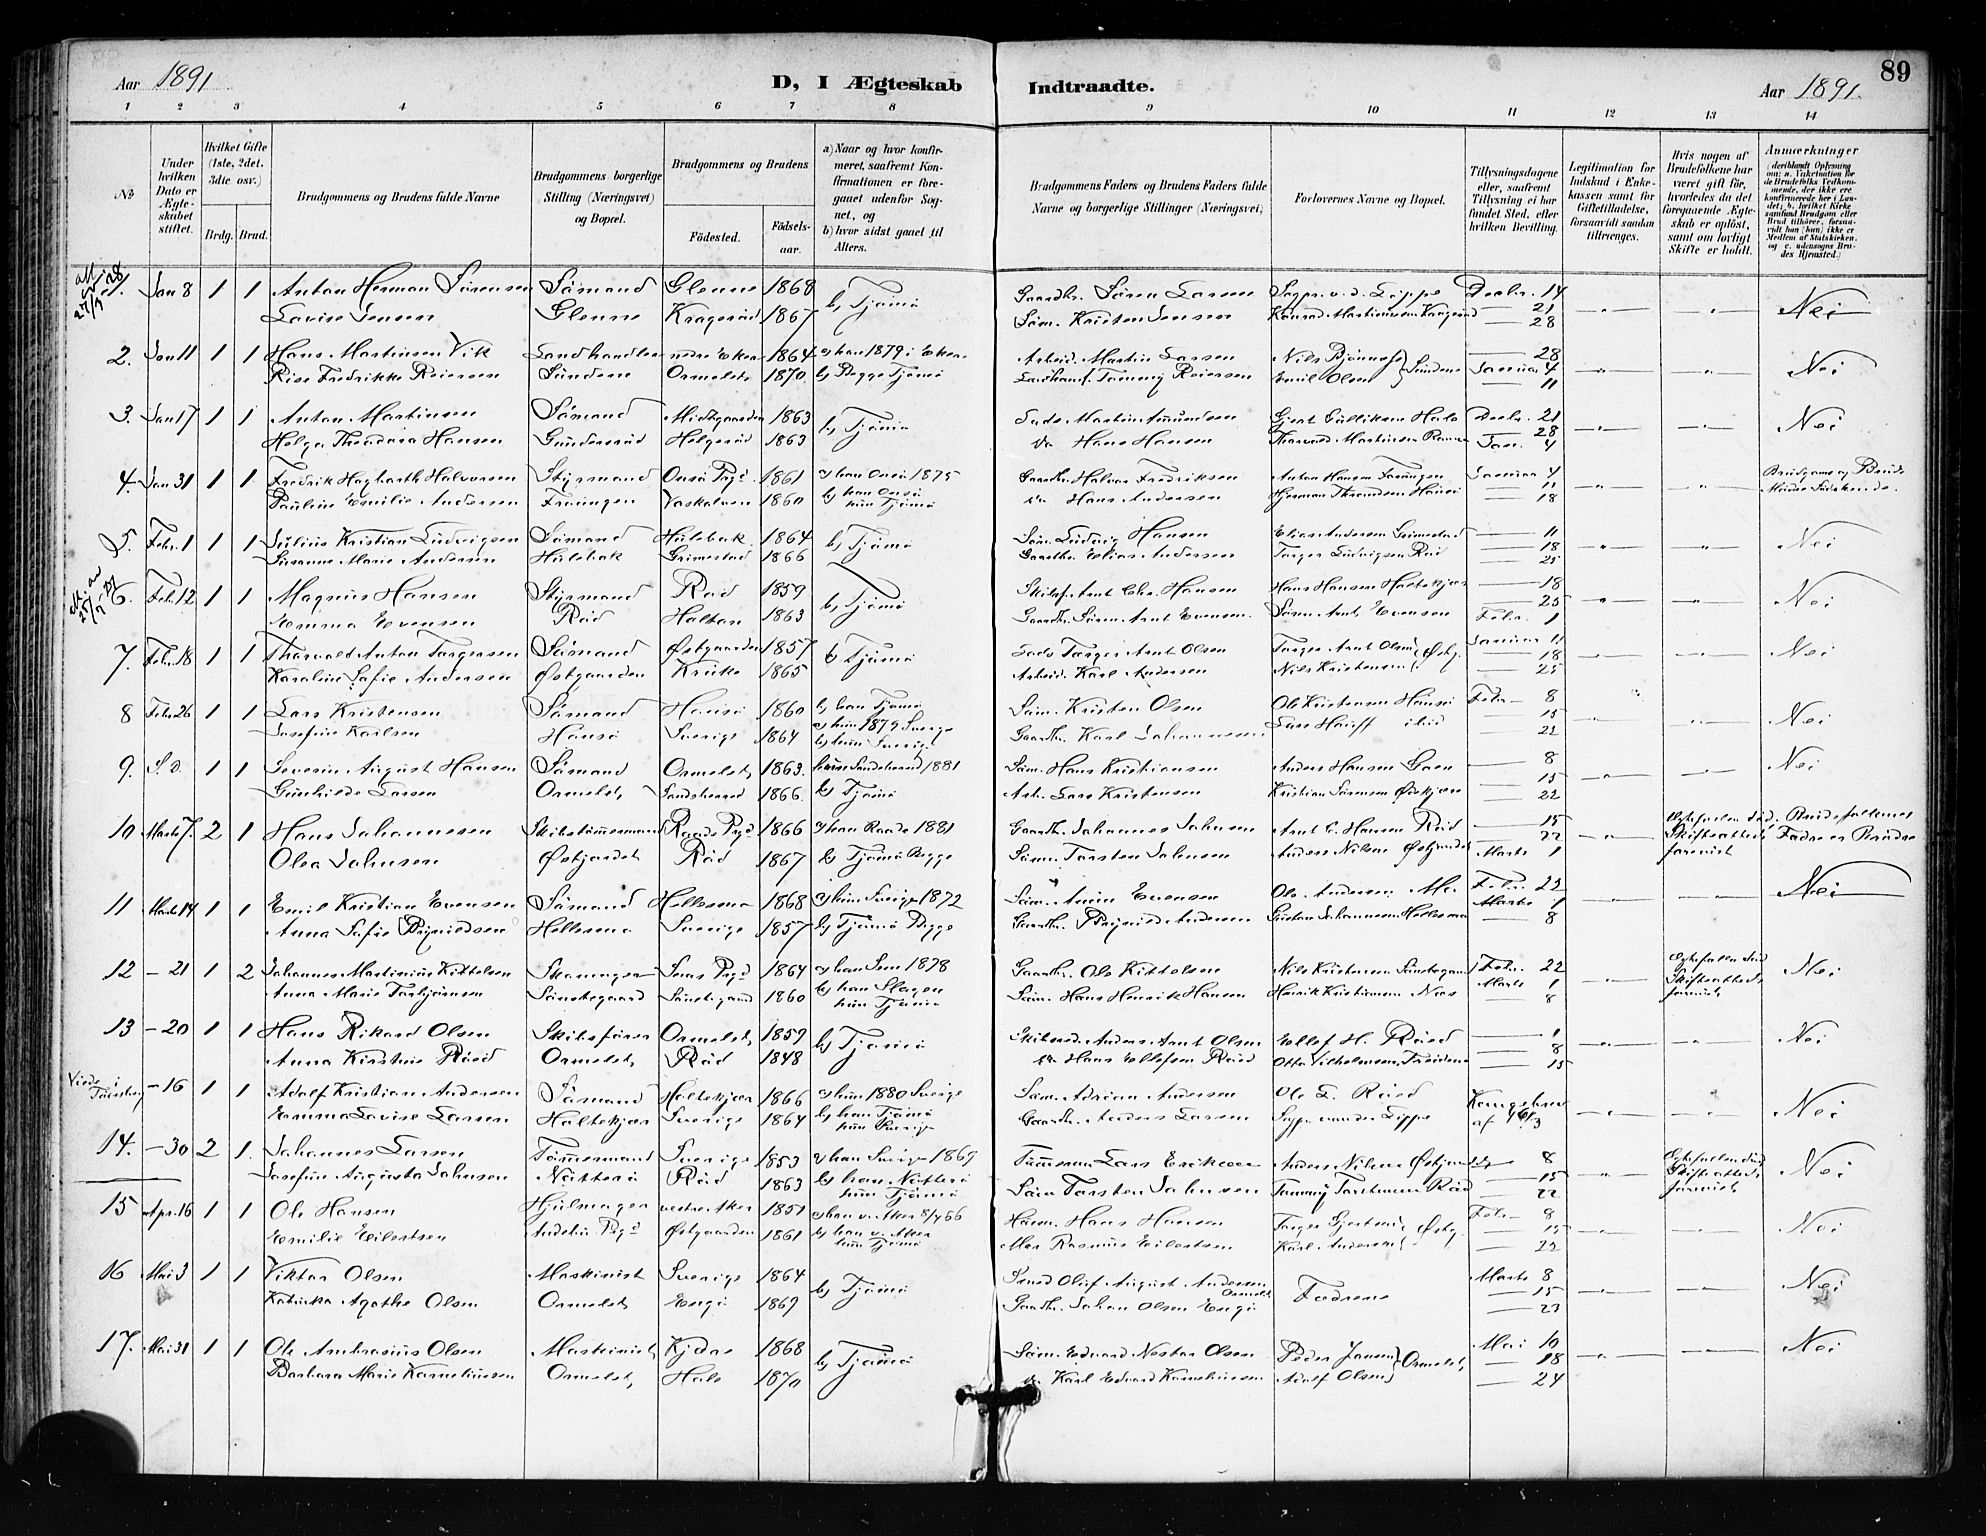 Aar 1891
D, I Ægteskab
Indtraadte.
Aar 1891.
89
1 2 3 4 5 6 7 8 9 10 11 12 13 14
№
Under hvilken Dato er Ægteskabet stiftet.
Hvilket Gifte (1ste, 2det, 3die osv.)
Brdg. Brud.
Brudgommens og Brudens fulde Navne
Brudgommens borgerlige Stilling (Næringsvei) og Bopæl.
Brudgommens og Brudens
Fødested.
Fødselsaar.
a) Naar og hvor konfirmeret, saafremt Konfirmationen er foregaaet udenfor Sognet, og
b) hvor sidst gaaet til Alters.
Brudgommens Faders og Brudens Faders fulde Navne og borgerlige Stillinger (Næringsvei)
Forlovernes Navne og Bopæl.
Tillysningsdagene eller, saafremt Tillysning ei har fundet Sted, efter hvilken Bevilling.
Legitimation for Indskud i Enkekassen samt for Giftetilladelse, forsaavidt saadan tiltrænges.
Hvis nogen af Brudefolkene har været gift før, hvorledes da det foregaaende Ægteskab er opløst, samt om lovligt Skifte er holdt.
Anmærkninger
1. Jan 8 1 1 Anton Herman Sørensen Sømand Glenne 1868 b) Tjømø Gaardbr. Søren Larsen Sogpr. v. d. Lippe Decbr. 14 Nei
Lovise Jensen Glenne Kragerød 1867 Søm. Kristen Jensen Konrad Martinsen 21
28
2. Jan 11 1 1 Hans Martinsen Vik Landhandler nedre Eker 1864 a) han 1879 i Eker Arbeid. Martin Larsen Nils Bjønnes 28 Nei
Rise Fredrikke Reiersen Sundene Ormelet 1870 b) Begge Tjømø Landhand. Tommy Reiersen Emil Olsen Sundene Januar 4
11
3. Jan 17 1 1 Anton Martinsen Sømand Midtgaarden 1863 b) Tjømø Martin Amundsen Gjert Gulliksen Hals Decbr. 21 Nei
Helga Theodora Hansen Gundersrød Helgerød 1863 Hans Hansen Thorvard Martinsen 28
Jan. 4
4. Jan 31 1 1 Fredrik Hagbarth Halvorsen Styrmand Onsø Prgd 1861 a) han Onsø 1875 Gaardbr. Halvor Fredriksen Anton Hansen Januar 4 Brudgom og Brud
Pauline Emilie Andersen Froungen Vaskalven 1860 b) han Onsø Hans Andersen Herman Throndsen 11
hun Tjømø 18
5. Febr. 1 1 1 Julius Kristian Ludvigsen Sømand Hulebak 1864 b) Tjømø Søm. Ludvig Hansen Elias Andersen Grimestad 11 Nei
Susanne Marie Andersen Hulebak Grimestad 1866 Gaardbr. Elias Andersen Torger Ludvigsen Rød 18
25
6. Febr. 12 1 1 Magnus Hansen Styrmand Rød 1859 b) Tjømø Skibsf. Arnt Chr. Hansen Hans Hansen Holtekjær 18 Nei
Emma Evensen Rød Holtan 1863 Gaardbr. Søren Arnt Evensen Søren Arnt Evensen 25
Febr. 1
7. Febr. 18 1 1 Thorvald Anton Torgersen Sømand Østgaarden 1857 b) Tjømø Torger Arnt Olsen Torger Arnt Olsen Østg. Januar 11 Nei
Karoline Sofie Andersen Østgaarden Kruke 1865 Arbeid. Karl Andersen Nils Kristensen 18
25
8 Febr. 26 1 1 Lars Kristensen Sømand Hønsø 1860 b) han Tjømø Søm. Kristen Olsen Ole Kristensen Hønsø Febr. 8
Josefine Karlsen Hønsø Sverige 1864 a) hun 1879 Sverige Gaardbr. Karl Johannessen Lars Hauff ibid 15 Nei
b) hun Sverige 22
9. S. D. 1 1 Severin August Hansen Sømand Ormelet 1863. hun Sandeherred 1881 Søm. Hans Kristiansen Anders Hansen 8 Nei
Gunhilde Larsen Ormelet Sandeherred 1866 b) Tjømø Arb. Lars Kristensen Kristian Sørensen 15
22
10 Marts 7. 2 1 Hans Johannessen Skibstømmermand Raade Prgd 1866 a) han Raade 1881 Gaardbr. Johannes Johnsen Arnt C. Hansen Rød 15 Ægtefællen død, Brudefolkenes
Olea Johnsen Østjordet Rød 1867 b) Tjømø Begge Søm. Torsten Johnsen Anders Nilsen Østjordet 22 Skifteattest Fædre er Brødre
Marts 1 forevist
11 Marts 14 1 1 Emil Kristian Evensen Sømand Hellesmo 1868 a) hun Sverige 1872 Søm. Anun Evensen Ole Andersen Mo. Febr. 22 Nei
Anna Sofie Hellesmo Sverige 1857 b) Tjømø Begge Gustav Johannessen Hellesmo Marts 1
8
12 – 21 1 2 Johannes Martinius Kittelsen Skomager Sem Prgd 1864 a) han Sem 1878 Gaardbr. Ole Kittelsen Nils Kristensen Febr. 22 Ægtefællen død Nei
Anna Marie Torbjørnsen Søndregaard 1860 b) han Slagen Søm. Hans Henrik Hansen Henrik Kristiansen Næs Marts 1 Skifteattest
hun Tjømø 8 forevist
13 – 20 1 1 Hans Rikard Olsen Skibsfører Ormelet 1859 b) Tjømø Anders Arnt Olsen Ellef H. Røed 1 Nei
Anna Kirstine Røed Ormelet Rød 1848 Hans Ellefsen Røed Otto Vilhelmsen 8
15
Viede i Tønsberg – 16 1 1 Adolf Kristian Andersen Sømand Holtekjær 1866 a) hun 1880 Sverige Søm. Adrian Andersen Ole E. Røed Kongebrev Nei
Emma Lovise Larsen Holtekjær Sverige 1864 b) han Tjømø Gaardbr. Anders Larsen Sogpr. van der Lippe
hun Sverige
14. – 30 2 1. Johannes Larsen Tømmermand Sverige 1853 a) han Sverige 1869 Tømmerm. Lars Eriksen Anders Nilsen Østjordet 8 Ægtefællen død Nei
Josefine Augusta Johnsen Nøtterø Rød 1863 b) han Nøtterø Søm Torsten Johnsen Tommy Torstensen Rød 15 Skifteattest
hun Tjømø 22 forevist
15 Apr. 16 1 1 Ole Hansen Hjulmager vestre Aker 1851 a) han v. Aker Hans Hansen Torger Gjertsen Febr. 8 Nei
Emilie Eilertsen Prgd Østgaarden 1861 b) han v. Aker Rasmus Eilertsen Karl Andersen Østg. 15
hun Tjømø 22
16 Mai 3 1 1 Viktor Olsen Maskinist Sverige 1864 b) Tjømø Smed Oluf August Andersen Ormelet Fædrene Marts 8 Nei
Katinka Agathe Olsen Ormelet Engø 1869 Gaardbr. Johan Olsen Engø 15
22
17. Mai 31 1 1 Ole Ambrosius Olsen Maskinist Kjøle 1868 b) Tjømø Søm. Edvard Nestor Olsen Peder Jansen Ormelet Mai 10 Nei
Barbara Marie Korneliussen Ormelet Hals 1870 Karl Edvard Korneliussen Adolf Olsen 18
24